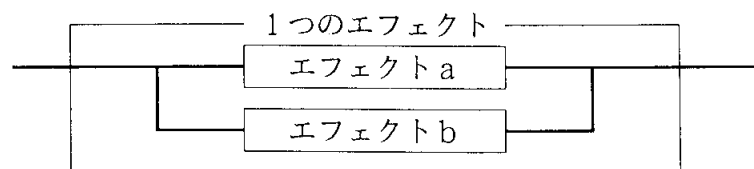 １つのエフェクト
エフェクトａ
エフェクトｂ